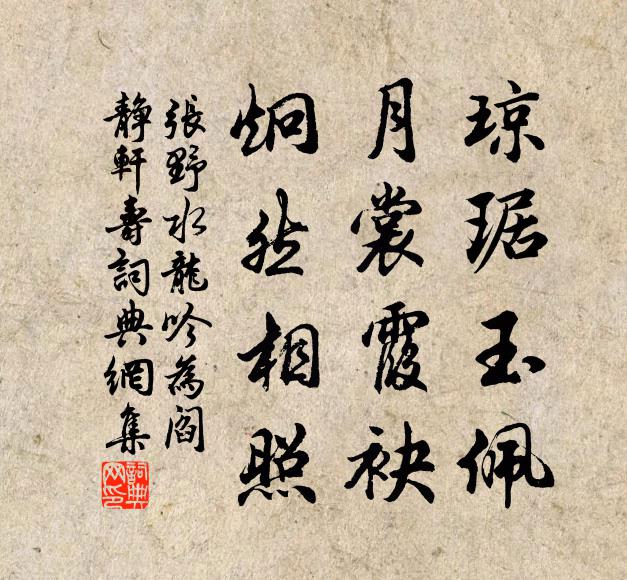 琼琚玉佩
月裳霞袂
炯然相照
張野水龍吟為閻
靜軒壽詞典網集
詞典網印